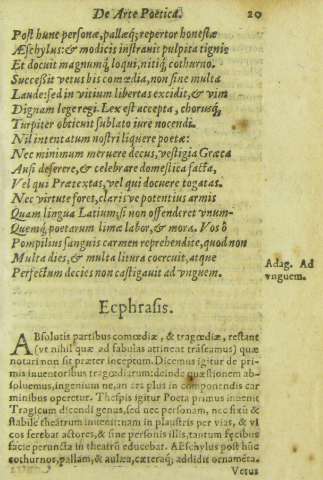 De Arte Poëtica. 20
Post hunc personæ, pallæq; repertor honestæ
Æschylus: & modicis instrauit pulpita tignis
Et docuit magnumq́; loqui, nitiq́; cothurno.
Successit vetus his comœdia, non sine multa
Laude: sed in vitium libertas excidit, & vim
Dignam lege regi. Lex est accepta, chorusq́;
Turpiter obticuit sublato iure nocendi.
Nil intentatum nostri liquere poëtæ:
Nec minimum meruere decus, vestigia Græca
Ausi deserere, & celebrare domestica facta,
Vel qui Prætextas, vel qui docuere togatas.
Nec virtute foret, claris ve potentius armis
Quam lingua Latium: si non offenderet vnum-
Quemq́; poëtarum limæ labor, & mora. Vos ô
Pompilius sanguis carmen reprehendite, quod non
Multa dies, & multa litura coercuit, atque
Adag. Ad
Perfectum decies non castigauit ad vnguem.
vnguem.
Ecphrasis.
ABsolutis partibus comœdiæ, & tragœdiæ, restant
(vt nihil quæ ad fabulas attinent trãseamus) quæ
notari non sit præter inceptum. Dicemus igitur de pri-
mis inuentoribus tragœdiarum: deinde quæstionem ab-
soluemus, ingenium ne, an ars plus in componendis car
minibus operetur. Thespis igitur Poëta primus inuenit
Tragicum dicendi genus, sed nec personam, nec fixũ &
stabile theatrum inuenit: nam in plaustris per vias, & vi
cos ferebat actores, & sine personis illis, tantum fęcibus
facie peruncta in theatrũ educebat. AEschylus post hũc
cothurnos, pallam, & aulæa, cæteraq́; addidit ornamẽta.
Vetus